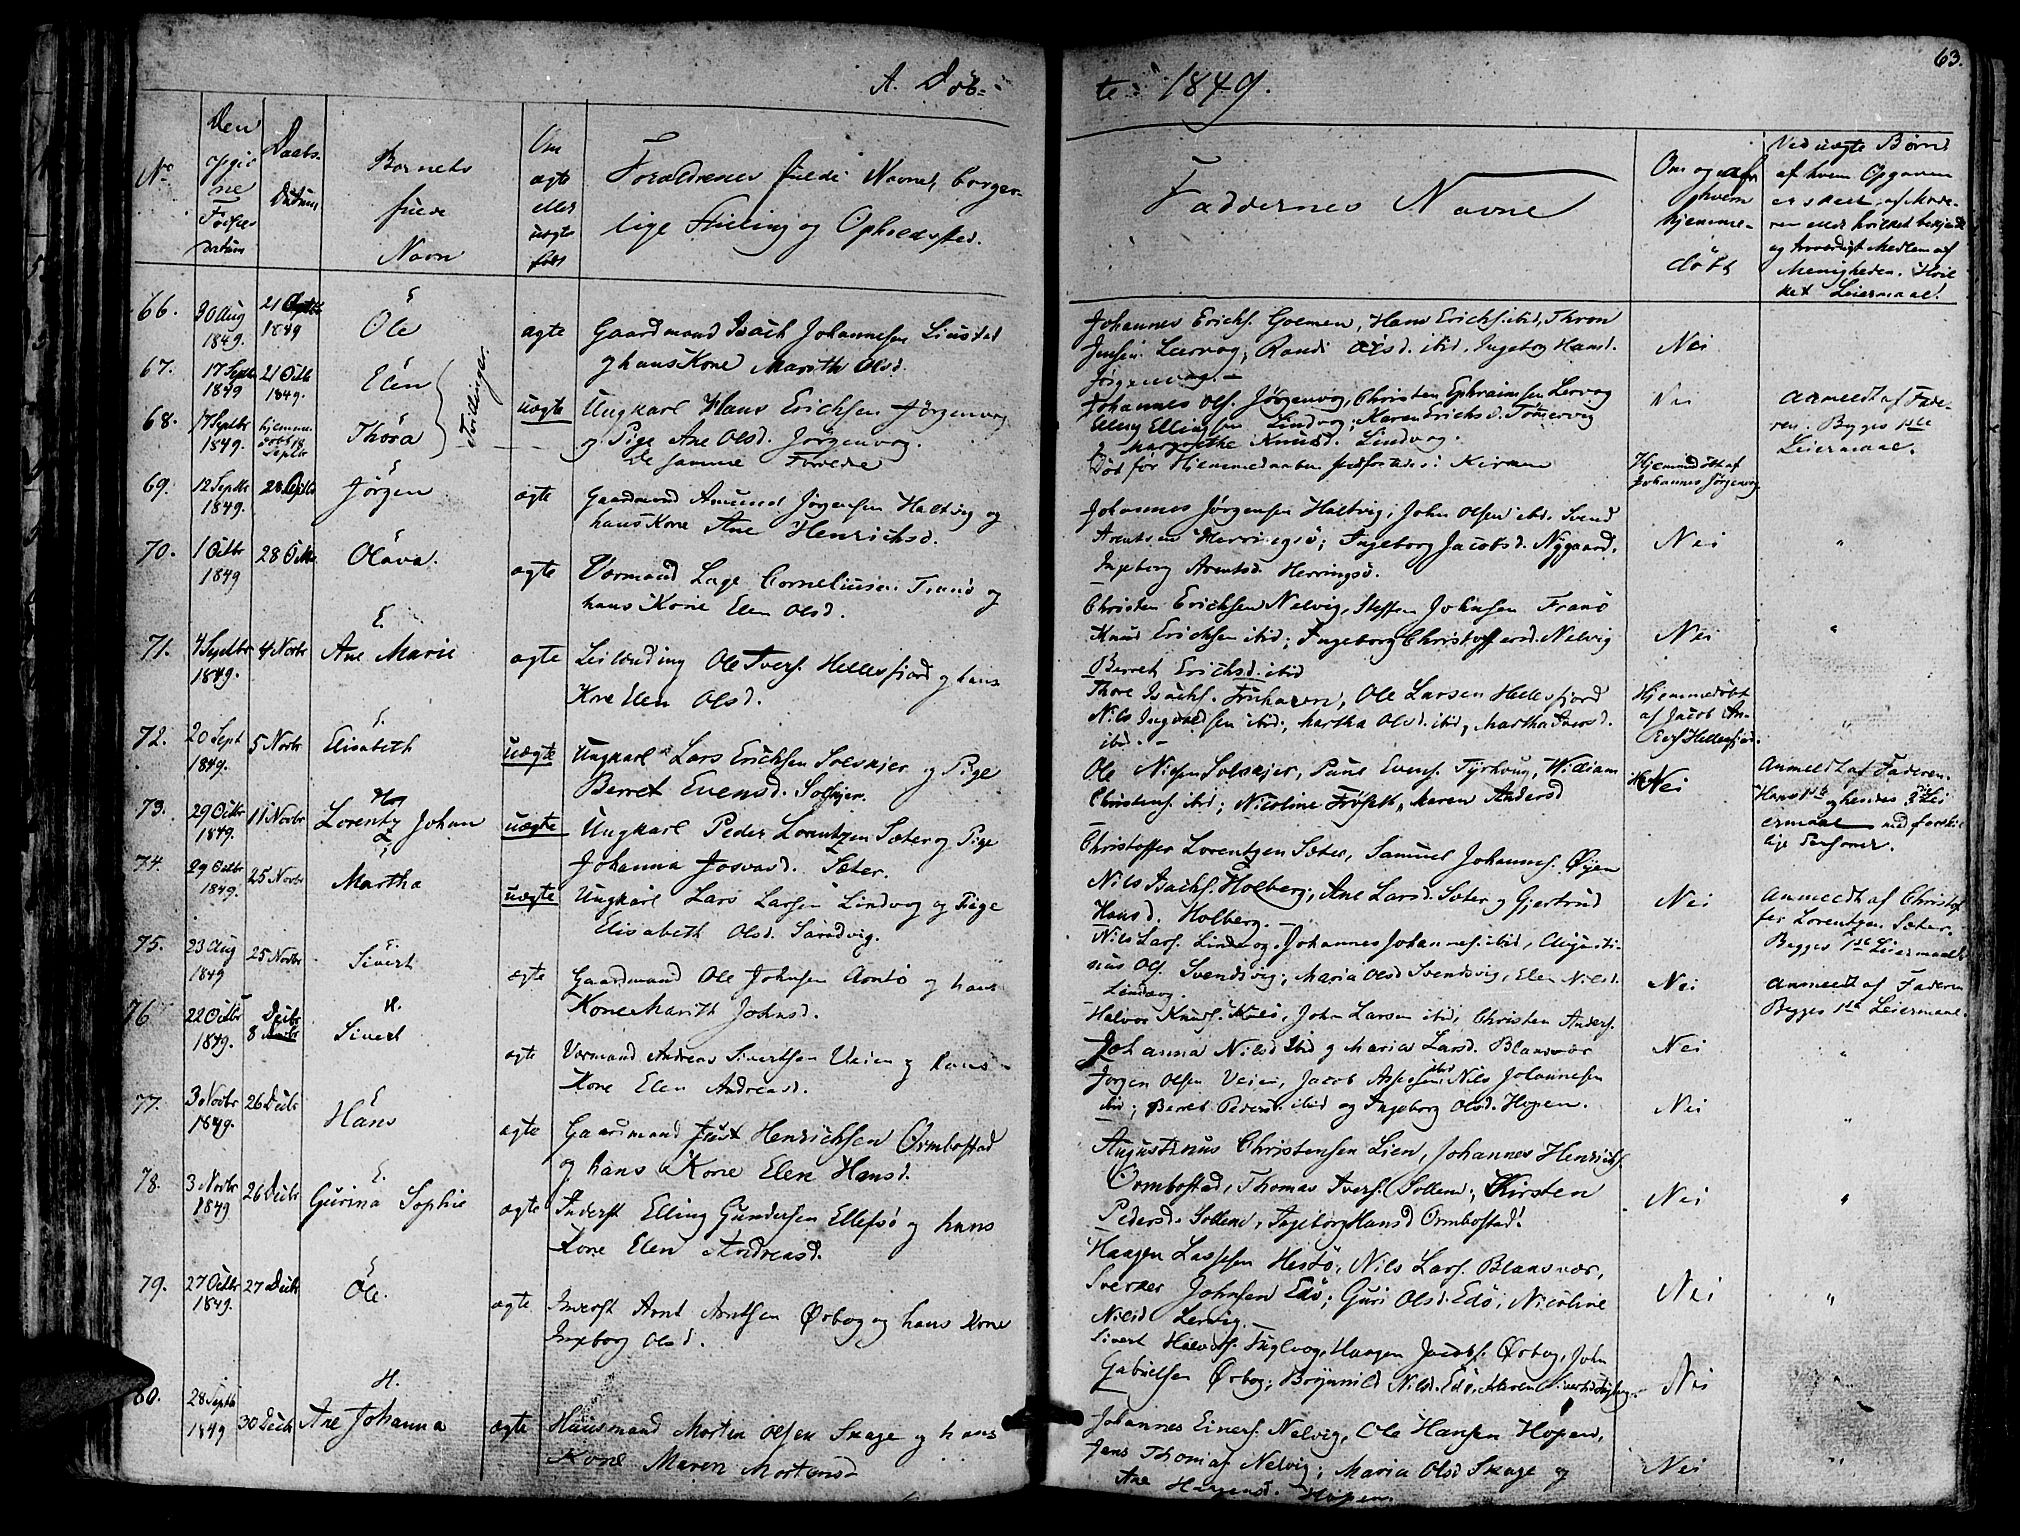 63.
A. Døb-
te 1849.
No
Den
Føgte
Daabs-
Datum
Barnets
fulde
Navn
Om
ægte
eller
uægte
født
Forældrenes fulde Navne, borger-
lige Stilling og Opholdssted.
Faddernes Navne
Om og af
hvem
hjemme-
døbt
Ved uægte Børn
af hvem Opgaven
er skeet, af Mode-
ren eller hvilket bekjendt
og troværdigt Medlem af
Menigheden. Hvil-
ket Leiermaal!
66.
30 Aug
1849.
21
1849
Ole
ægte
Gaardmand Isach Johannesen Liustad
og hans Kone Marith Olsd.
Johannes Erichs. Goemen, Hans Erichs. ibid, Thron
Jensen Leervog; Randi Olsd. ibid, Ingeborg Hansd.
Jørgenvog.
Nei
67.
17 Septr
1849
21 Octb
1849.
Elen
Tvillinger.
uægte
Ungkarl Hans Erichsen Jörgenvog
og Pige Ane Olsd. Jörgenvog.
Johannes Ols. Jørgenvog, Christen Ephraimsen Lervog
Elling Ellingsen Lindvog; Karen Erichsd. Tømmervog
og Margrethe Knudsd. Lindvog.
Nei
Anmeldt af Fade-
ren. Begges 1ste
Leiermaal.
68.
17 Septbr
1849.
hjemme
døbt 18
Septbr
Thöra
De samme Forældre
Död før Hjemmedaaben stadfæstedes i Kirken
Hjemmedöbt af
Johannes Jørgenvog
69.
12 Septbr
1849.
28
Jörgen
ægte
Gaardmand Amund Jörgensen Haltvig og
hans Kone Ane Henrichsd.
Johannes Jørgensen Haltvig; John Olsen ibid. Svend
Arentsen Herringsö; Ingeborg Jacobsd. Nygaard,
Ingeborg Arentsd. Herringsö.
Nei
"
70.
1 Octbr
1849
28 Octb.
Olava.
ægte
Vormand Lage Corneliusen Tranö og
hans Kone Elen Olsd.
Christen Erichsen Nelvig, Steffen Johnsen Tranö
Knud Erichsen ibid; Ingeborg Christoffersd. Nelvig
Berret Erichsd. ibid
Nei
"
71.
4 Septbr
1849.
4 Novbr
Ane Marie
ægte
Leilænding Ole Ivers. Hellesfjord og hans
Kone Elen Olsd.
Thore Isachs. Truhaven, Ole Larsen Hellesfjord
Nils Ingvaldsen ibid; Martha Olsd. ibid, Martha Iversd.
ibid.
Hjemmedøbt
af Jacob An-
ders Hellesfjord.
"
72.
20 Sept
1849.
5 Novbr
Elisabeth
uægte
Ungkarl Lars Erichsen Solskjer og Pige
Berret Evensd. Solskjer.
Ole Nielsen Solskjer, Paul Evens. Tyrhaug, William
Christens. ibid; Nicoline Frøseth, Maren Andersd
Nei
Anmeldt af Faderen.
Hans 1ste og hendes 3die Lei
ermaal med forskiel
lige Personer.
73.
29 Octbr
1849.
11 Novbr
Lorentz Johan
uægte
Ungkarl Peder Lorentzen Sæter og Pige
Johanna Josvad. Sæter.
Christoffer Lorentzen Sæter, Samuel Johannes. Øyen
Nils Isachs. Holberg; Ane Larsd. Sæter og Gjertrud
Hansd. Holberg.
Nei
Anmeldt af Christof
fer Lorentzen Sæter.
Begges 1ste Leiermaal
74.
29 Octbr
1849.
25 Novbr
Martha
uægte
Ungkarl Lars Larsen Lindvog og Pige
Elisabeth Olsd. Sandvig.
Nils Lars. Lindvog, Johannes Johannes. ibid, Augusti-
nus Ols. Svendsvig; Maria Olsd Svendsvig, Elen Nilsd.
Lindvog.
Nei
Anmeldt af Faderen
Begges 1ste Leiermaal.
75.
23 Aug
1849
25 Novbr
Sivert
ægte
Gaardmand Ole Johnsen Arntö og hans
Kone Marith Johnsd.
Halvor Knuds. Kulö, John Larsen ibid, Christen Anders.
Johanna Nilsd ibid og Maria Larsd. Blansvær
Nei
"
76
22 Octbr
1849.
Decbr
8
Sivert
ægte
Vormand Andreas Sivertsen Veien og hans
Kone Elen Andreasd.
Jørgen Olsen Veien, Jacob Aspesen ibid, Nils Johannesen
ibid; Berret Pedersd. ibid og Ingeborg Olsd. Hopen.
Nei
"
77.
3 Novbr
1849.
26 Decbr
Hans
ægte
Gaardmand Just Henrichsen Ormbostad
og hans Kone Elen Hansd.
Augustinus Christensen Lien, Johannes Henrichs.
Ormbostad, Thomas Ivers. Sollem; Kirsten
Pedersd. Sollem, Ingeborg Hansd Ormbostad!
Nei
"
78.
3 Novbr
1849
26 Decbr
Gurina Sophie
ægte
Inderst Elling Gundersen Ellefsö og hans
Kone Elen Andreasd.
Haagen Lassesen Hestö, Nils Lars. Blansvær,
Sverker Johnsen Edö; Guri Olsd. Edö, Nicoline
Nilsd Lervig.
Nei
"
79.
27 Octbr
1849.
27 Decbr
Ole.
ægte
Inderst Arnt Arntsen Ørbog og hans Kone
Ingeborg Olsd.
Sivert Halvors. Fuglvog, Haagen Jacobs. Ørbog, John
Gabrielsen Ørbog; Brynnild Nilsd. Edö, Maren Sivertsd. Fuglvog.
Nei
80.
28 Septb
1849
30 Decb
Ane Johanna
ægte
Huusmand Morten Olsen Skage og hans
Kone Maren Mortensd
Johannes Einers. Nelvig, Ole Hansen Hopen,
Jens Thomas. Nelvig; Maria Olsd Skage og
Ane Haagensd. Hopen.
Nei
"